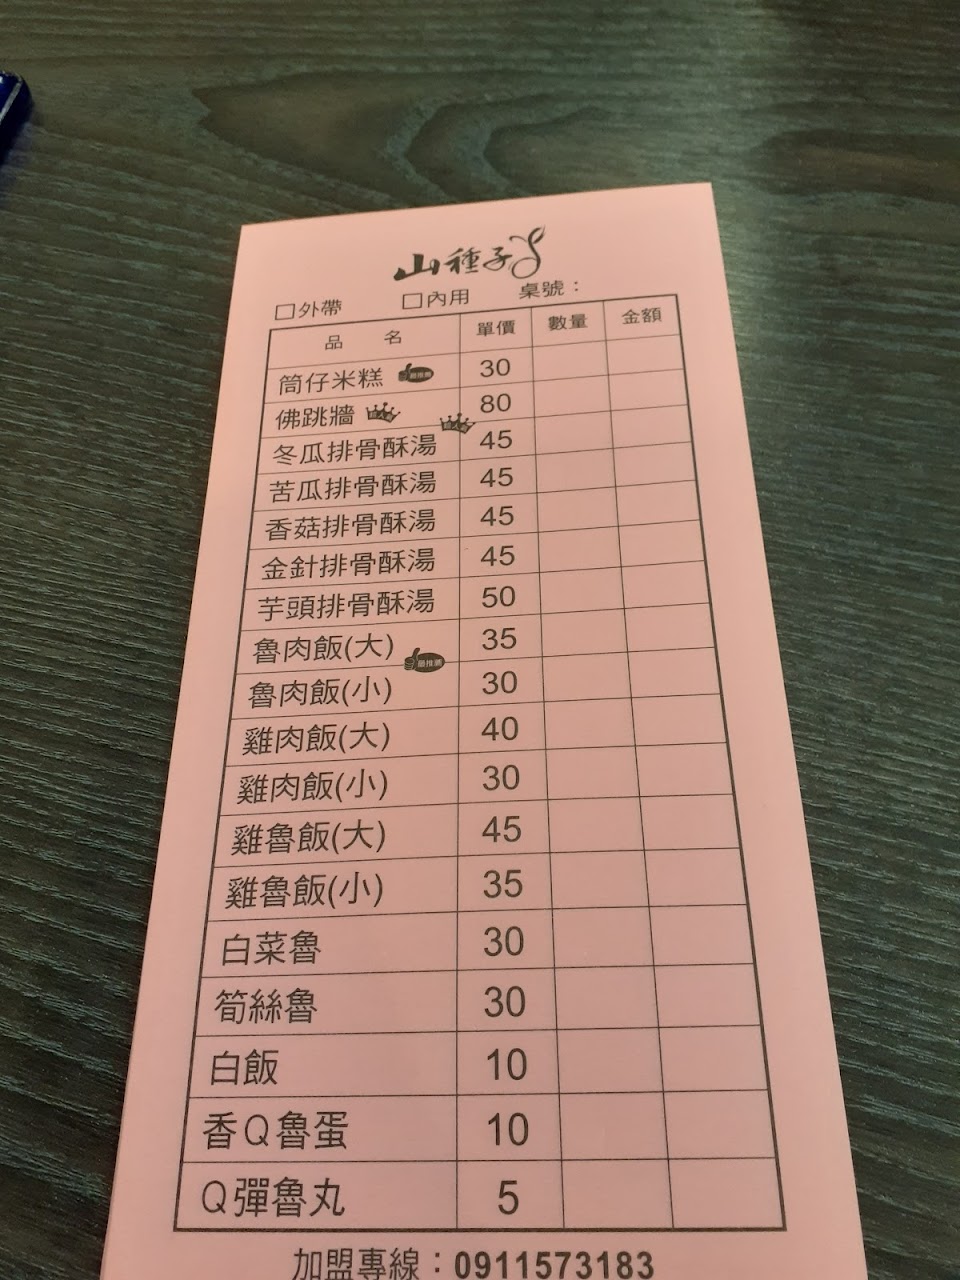 山種子
□外帶 □內用 桌號：
品名 單價 數量 金額
筒仔米糕 最推薦 30
佛跳牆 80
冬瓜排骨酥湯 45
苦瓜排骨酥湯 45
香菇排骨酥湯 45
金針排骨酥湯 45
芋頭排骨酥湯 50
魯肉飯(大) 35
最推薦
魯肉飯(小) 30
雞肉飯(大) 40
雞肉飯(小) 30
雞魯飯(大) 45
雞魯飯(小) 35
白菜魯 30
筍絲魯 30
白飯 10
香Q魯蛋 10
Q彈魯丸 5
加盟專線：0911573183